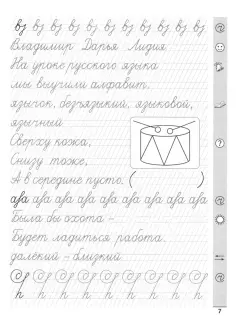 вз вз вз вз вз вз вз вз вз
Владимир Дарья Лидия
На уроке русского языка
мы выучили алфавит.
язычок, безъязыкий, языковой,
язычный
Сверху кожа,
Снизу тоже,
А в середине пусто. ( )
аза аза аза аза аза аза аза аза аза
Была бы охота –
Будет ладиться работа.
далёкий – близкий
h h h h h h h h
7